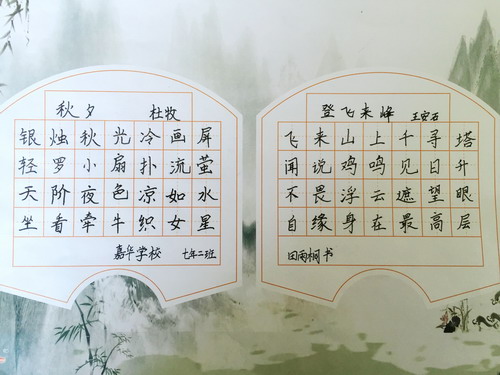 秋夕 杜牧
银烛秋光冷画屏
轻罗小扇扑流萤
天阶夜色凉如水
坐看牵牛织女星
嘉华学校 七年二班
登飞来峰 王安石
飞来山上千寻塔
闻说鸡鸣见日升
不畏浮云遮望眼
自缘身在最高层
田雨桐书